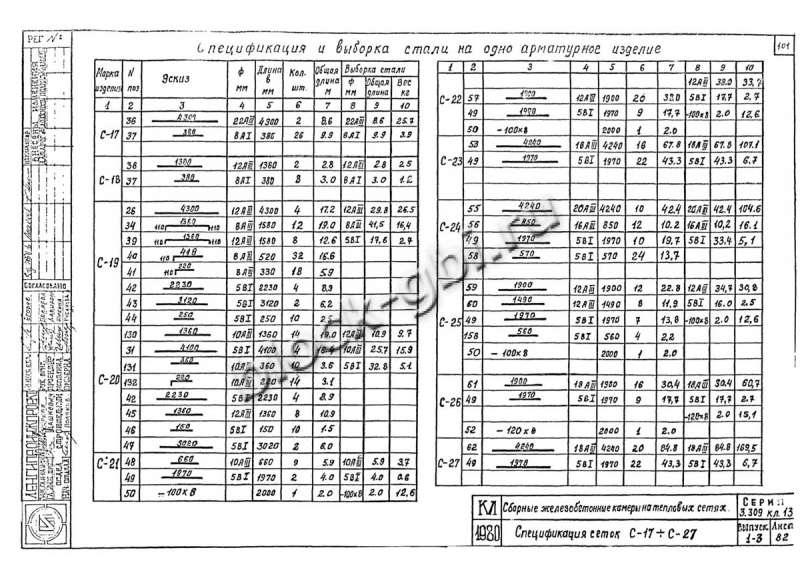 РЕГ №
101
Спецификация и выборка стали на одно арматурное изделие
Марка изделия N поз Эскиз ф мм Длина в мм Кол. шт. Общая длина м Выборка стали ф мм Общая длина Вес кг
1 2 3 4 5 6 7 8 9 10
С-17
36 4300 22АIII 4300 2 8.6 22АIII 8.6 25.7
37 380 8АI 380 26 9.9 8АI 9.9 3.9
С-18
38 1380 12АIII 1380 2 2.8 12АIII 2.8 2.5
37 380 8АI 380 8 3.0 8АI 3.0 1.2
С-19
26 4300 12АIII 4300 4 17.2 12АIII 29.8 26.5
34 110 1360 110 8АIII 1580 12 19.0 8АIII 41,5 16,4
39 110 1360 110 12АIII 1580 8 12.6 5ВI 17,6 2.7
40 110 8АIII 520 32 16.6
41 110 220 8АIII 330 18 5.9
42 2230 5ВI 2230 4 8.9
43 3120 5ВI 3120 2 6.2
44 250 5ВI 250 10 2.5
С-20
130 1360 10АIII 1360 14 19.0 12АIII 10.9 9.7
31 4100 5ВI 4100 4 16.4 10АIII 25.7 15.9
131 360 10АIII 360 10 3.6 5ВI 32.8 5.1
132 220 10АIII 220 14 3.1
42 2230 5ВI 2230 4 8.9
45 1360 12АIII 1360 8 10.9
46 150 5ВI 150 10 1.5
47 3020 5ВI 3020 2 6.0
С-21
48 660 10АIII 660 9 5.9 10АIII 5.9 3.7
49 1970 5ВI 1970 2 4.0 5ВI 4.0 0.6
50 -100×8 2000 1 2.0 -100×8 2.0 12,6
1 2 3 4 5 6 7 8 9 10
12АIII 38.0 33,7
С-22 57 1900 12АIII 1900 20 38.0 5ВI 17,7 2.7
49 1970 5ВI 1970 9 17,7 -100×8 2.0 12,6
50 -100×8 2000 1 2.0
С-23
53 4240 18АIII 4240 16 67.8 18АIII 67.8 107.1
49 1970 5ВI 1970 22 43.3 5ВI 43.3 6.7
С-24
55 4240 20АIII 4240 10 42.4 20АIII 42.4 104.6
56 850 16АIII 850 12 10.2 16АIII 10.2 16.1
49 1970 5ВI 1970 10 19,7 5ВI 33.4 5,1
58 570 5ВI 570 24 13,7
С-25
59 1900 12АIII 1900 12 22.8 12АIII 34,7 30,8
60 1490 12АIII 1490 8 11,9 5ВI 16.0 2.5
49 1970 5ВI 1970 7 13,8 -100×8 2.0 12,6
158 560 5ВI 560 4 2,2
50 -100×8 2000 1 2.0
С-26
61 1900 18АIII 1900 16 30,4 18АIII 30.4 60,7
49 1970 5ВI 1970 9 17,7 5ВI 17.7 2.7
-120×8 2.0 15,1
52 -120×8 2000 1 2.0
С-27
62 4240 18АIII 4240 20 84.8 18АIII 84.8 169,5
49 1970 5ВI 1970 22 43,3 5ВI 43,3 6,7
КЛ 1980
Сборные железобетонные камеры на тепловых сетях.
Спецификация сеток С-17÷С-27
Серия 3.309 кл.13
Выпуск 1-3
Лист 82
СОГЛАСОВАНО
ЛЕНГИПРОИНЖПРОЕКТ
blok-gbi.ru